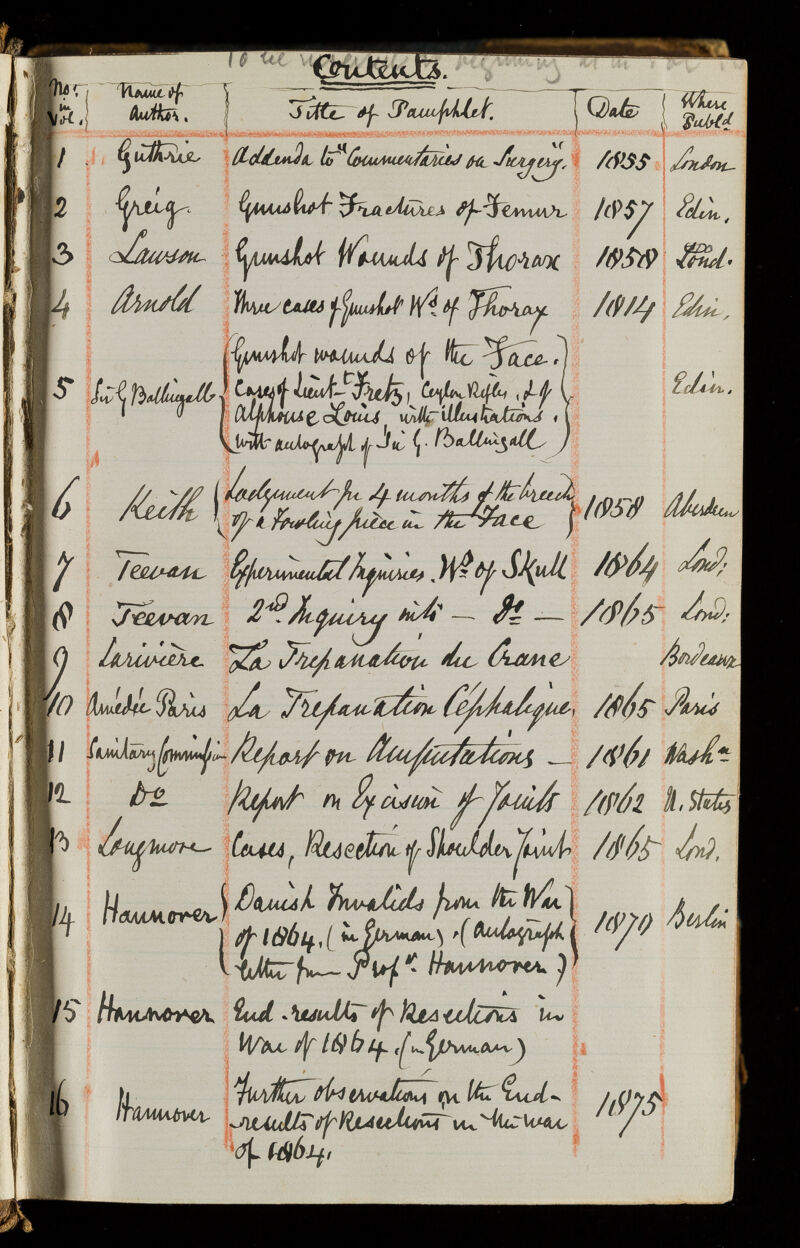 To be
Contents.
No. in Vol. Name of Author. Title of Pamphlet. Date Where Publd
1 Guthrie Addenda to "Commentaries on Surgery". 1855 London
2 Greig. Gunshot Fractures of Femur 1857 Edin.
3 Lawson Gunshot Wounds of Thorax 1858 Lond.
4 Arnold Three cases of Gunshot Wds. of Thorax 1814 Edin.
Gunshot wounds of the Face.
5 Sir G Ballingall Cases of Lieut-t Fretz, Ceylon Rifles, & of Edin.
Alphonse Louis, with illustrations.
with autograph of Sir G. Ballingall
6 Keith Lodgement for 4 months of the breech 1858 Aberdeen
of a Fowling piece in the Face
7 Teevan Experimental Inquiries. Wds of Skull 1864 Lond:
8 Teevan 2nd. Inquiry into — Do — 1865 Lond:
9 Larivière La Trepanation du Crane Bordeaux
10 Amédée Paris La Trepanation Céphalique. 1865 Paris
11 Sanitary Commission Report on Amputations — 1861 Washn
12 Do Report on Excision of Joints 1862 U. States
13 Longmore Cases, Resection of Shoulder Joint 1865 Lond.
14 Hannover Danish Invalids from the War 1870 Berlin
of 1864. (in German). (Autograph
letter from Profr. Hannover.)
15 Hannover End-results of Resections in
War of 1864. (in German)
16 Hannover Further observations on the End- 1875
-results of Resections in the War
of 1864.